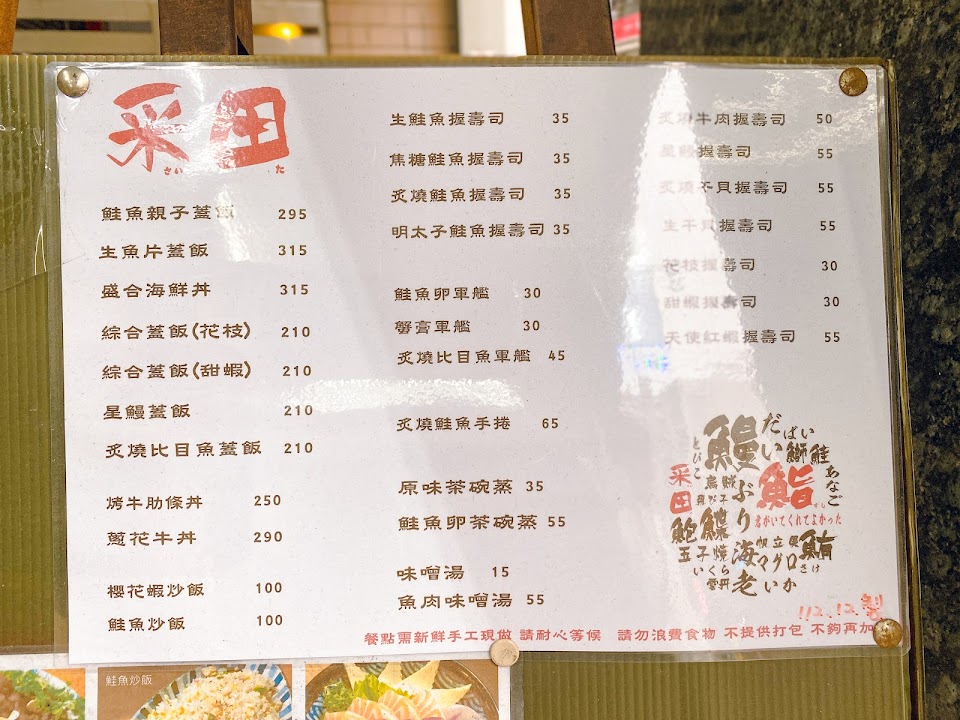 采田
さい た
鮭魚親子蓋飯 295
生魚片蓋飯 315
盛合海鮮丼 315
綜合蓋飯(花枝) 210
綜合蓋飯(甜蝦) 210
星鰻蓋飯 210
炙燒比目魚蓋飯 210
烤牛肋條丼 250
蔥花牛丼 290
櫻花蝦炒飯 100
鮭魚炒飯 100
生鮭魚握壽司 35
焦糖鮭魚握壽司 35
炙燒鮭魚握壽司 35
明太子鮭魚握壽司 35
鮭魚卵軍艦 30
蟹膏軍艦 30
炙燒比目魚軍艦 45
炙燒鮭魚手捲 65
原味茶碗蒸 35
鮭魚卵茶碗蒸 55
味噌湯 15
魚肉味噌湯 55
炙燒牛肉握壽司 50
星鰻握壽司 55
炙燒干貝握壽司 55
生干貝握壽司 55
花枝握壽司 30
甜蝦握壽司 30
天使紅蝦握壽司 55
とびこ
鰻
だい
ばい
鰤
鮭
あなご
采田
烏賊
ぶり
鮨
すし
君がいてくれてよかった
鮑
鰈
玉子焼
海老
帆立貝
鮪
マグロ
さけ
いくら
雲丹
いか
112.12.製
餐點需新鮮手工現做 請耐心等候 請勿浪費食物 不提供打包 不夠再加
鮭魚炒飯